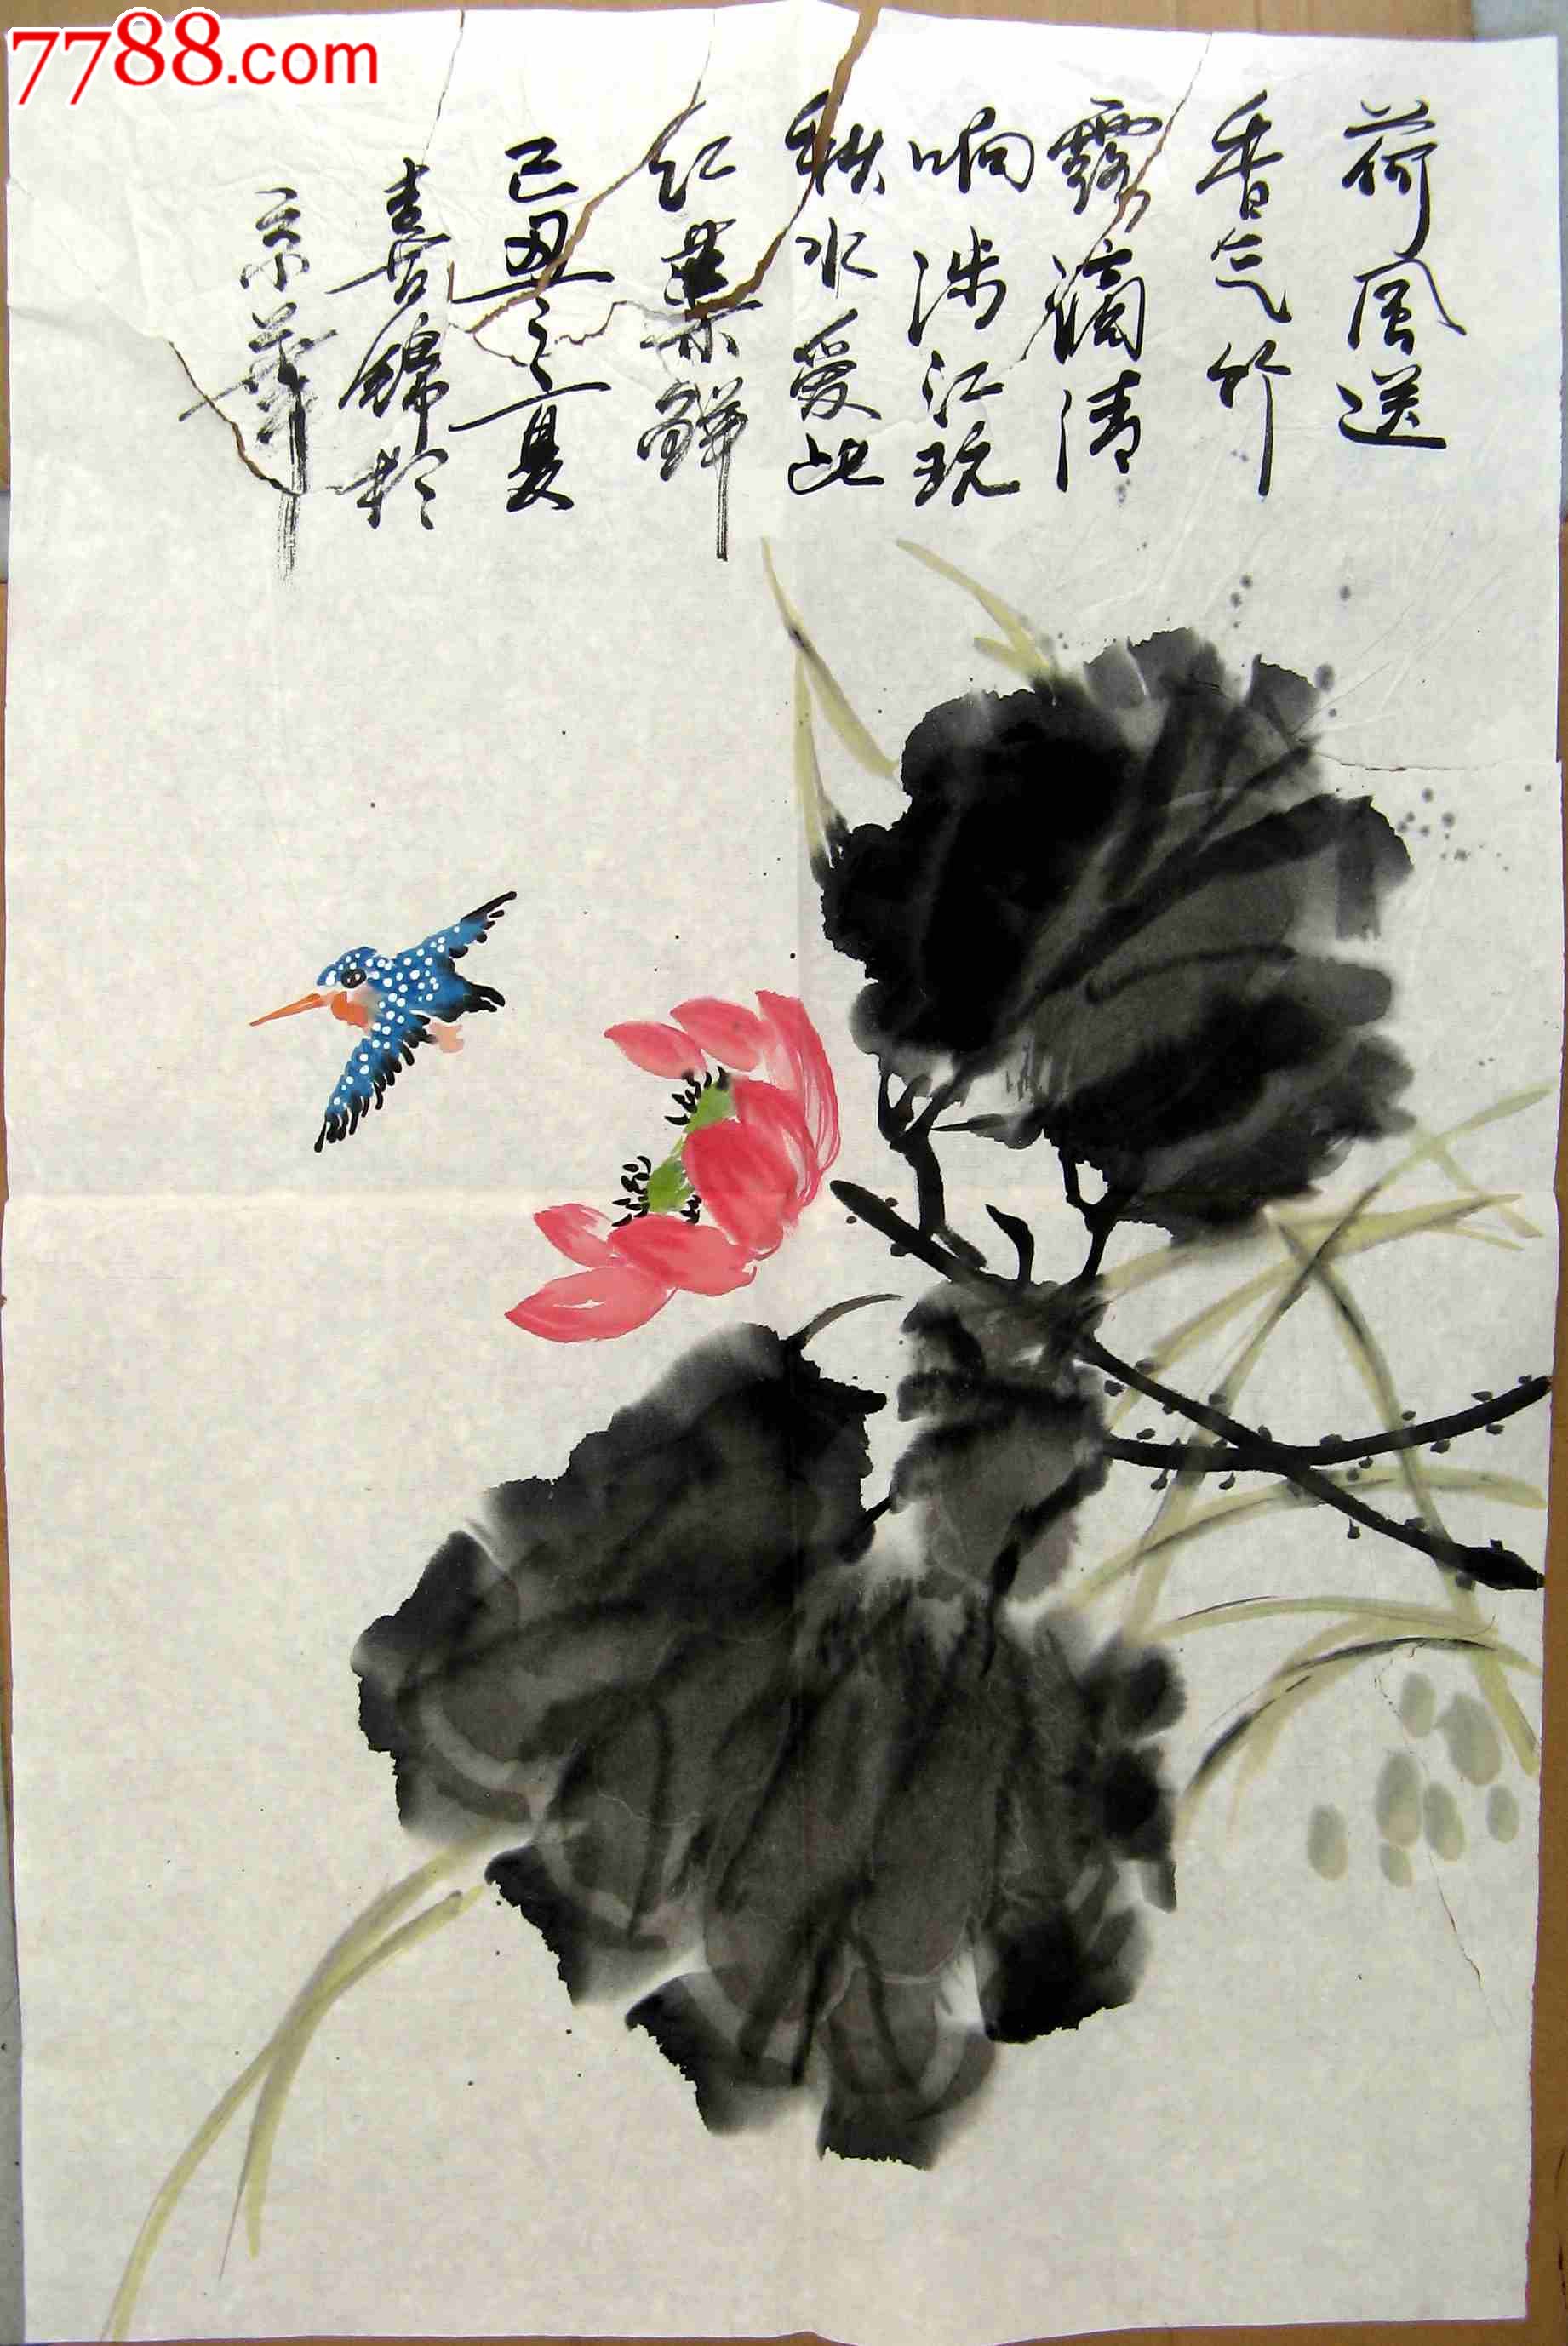 7788.com
荷风送
香气竹
露滴清
响涉江玩
秋水爱此
红蕖鲜
己丑之夏
喜锦于
京华